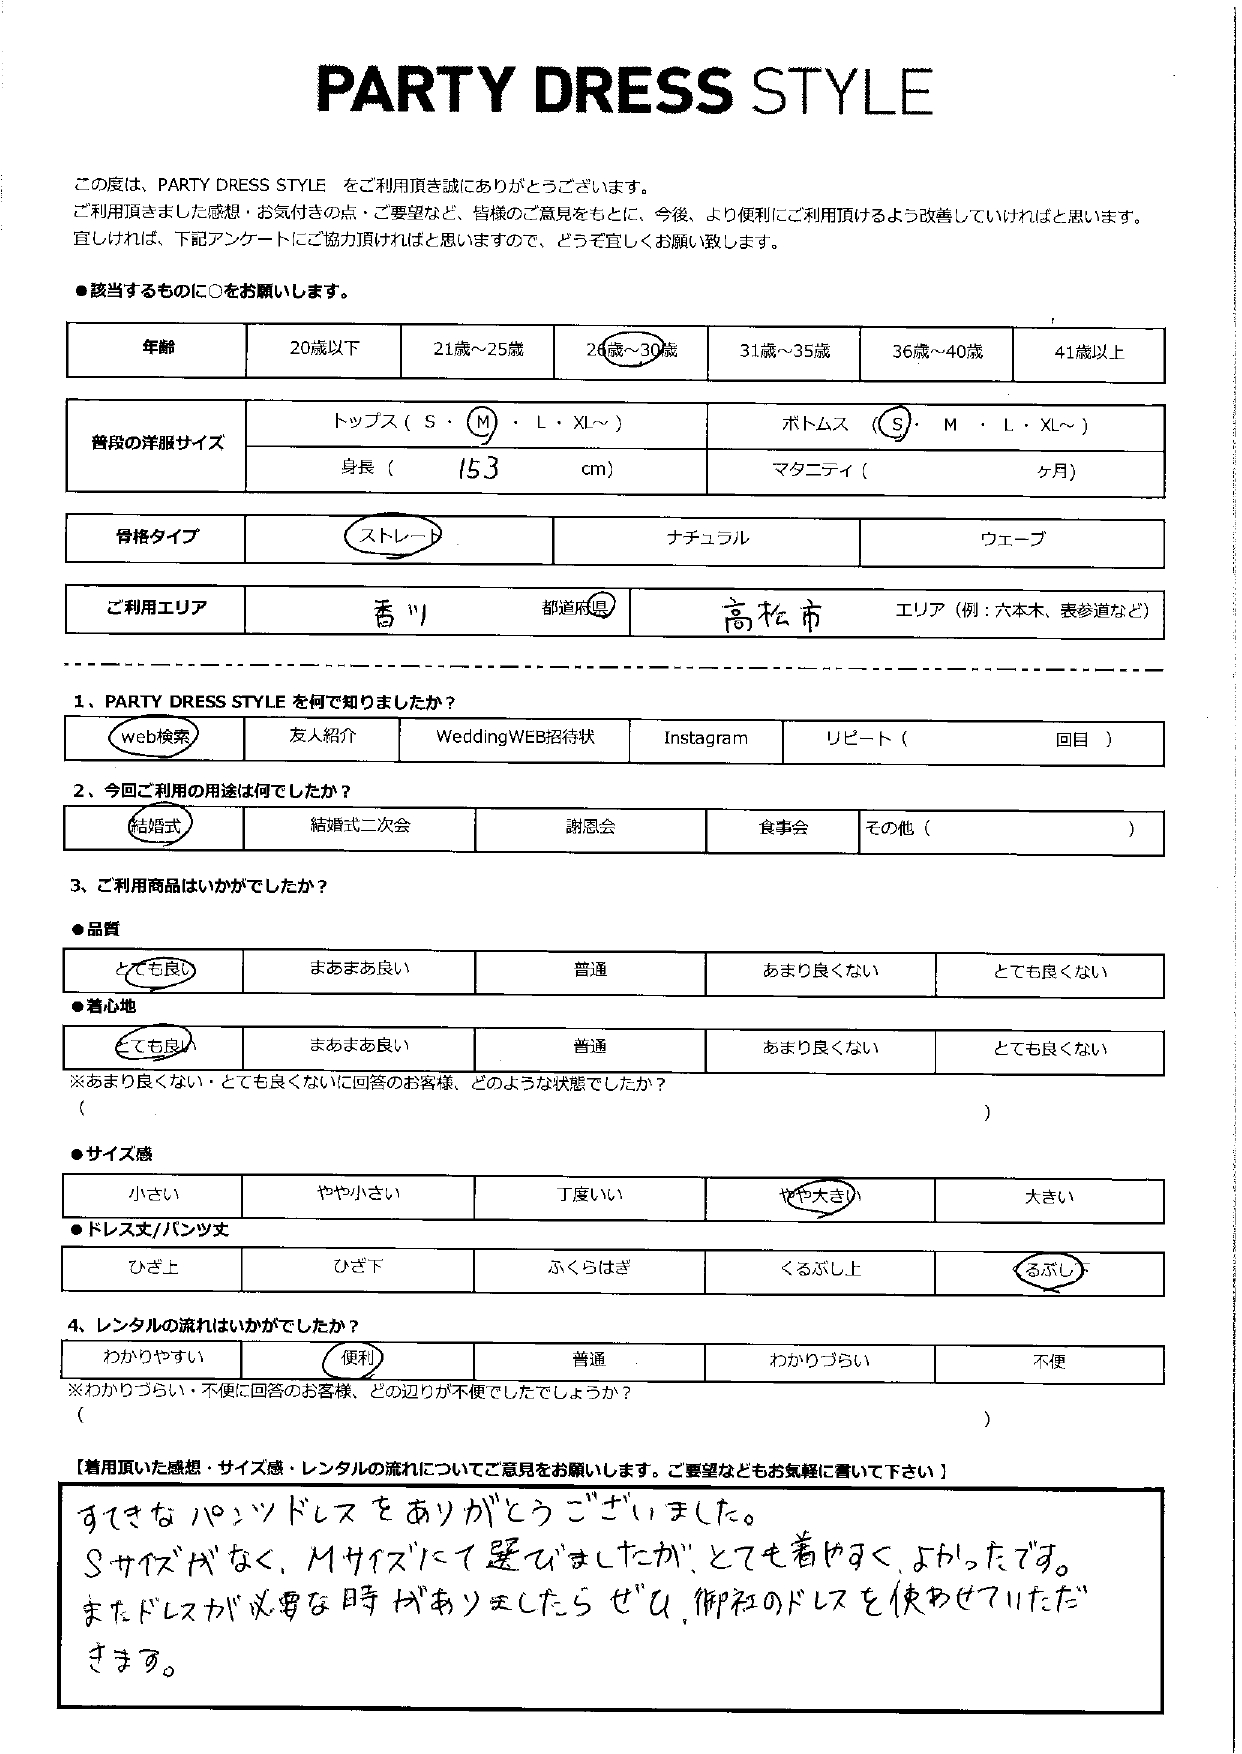 PARTY DRESS STYLE
この度は、PARTY DRESS STYLE をご利用頂き誠にありがとうございます。
ご利用頂きました感想・お気付きの点・ご要望など、皆様のご意見をもとに、今後、より便利にご利用頂けるよう改善していければと思います。
宜しければ、下記アンケートにご協力頂ければと思いますので、どうぞ宜しくお願い致します。
●該当するものに○をお願いします。
年齢 20歳以下 21歳～25歳 26歳～30歳 31歳～35歳 36歳～40歳 41歳以上
普段の洋服サイズ
トップス ( S ・ M ・ L ・ XL～ ) ボトムス ( S ・ M ・ L ・ XL～ )
身長 ( 153 cm) マタニティ ( ヶ月)
骨格タイプ ストレート ナチュラル ウェーブ
ご利用エリア 香川 都道府県 高松市 エリア（例：六本木、表参道など）
1、PARTY DRESS STYLE を何で知りましたか？
web検索 友人紹介 WeddingWEB招待状 Instagram リピート ( 回目 )
2、今回ご利用の用途は何でしたか？
結婚式 結婚式二次会 謝恩会 食事会 その他 ( )
3、ご利用商品はいかがでしたか？
●品質
とても良い まあまあ良い 普通 あまり良くない とても良くない
●着心地
とても良い まあまあ良い 普通 あまり良くない とても良くない
※あまり良くない・とても良くないに回答のお客様、どのような状態でしたか？
( )
●サイズ感
小さい やや小さい 丁度いい やや大きい 大きい
●ドレス丈/パンツ丈
ひざ上 ひざ下 ふくらはぎ くるぶし上 くるぶし下
4、レンタルの流れはいかがでしたか？
わかりやすい 便利 普通 わかりづらい 不便
※わかりづらい・不便に回答のお客様、どの辺りが不便でしたでしょうか？
( )
【着用頂いた感想・サイズ感・レンタルの流れについてご意見をお願いします。ご要望などもお気軽に書いて下さい】
すてきなパンツドレスをありがとうございました。
Sサイズがなく、Mサイズにて選びましたが、とても着やすく、よかったです。
またドレスが必要な時がありましたらぜひ、御社のドレスを使わせていただ
きます。